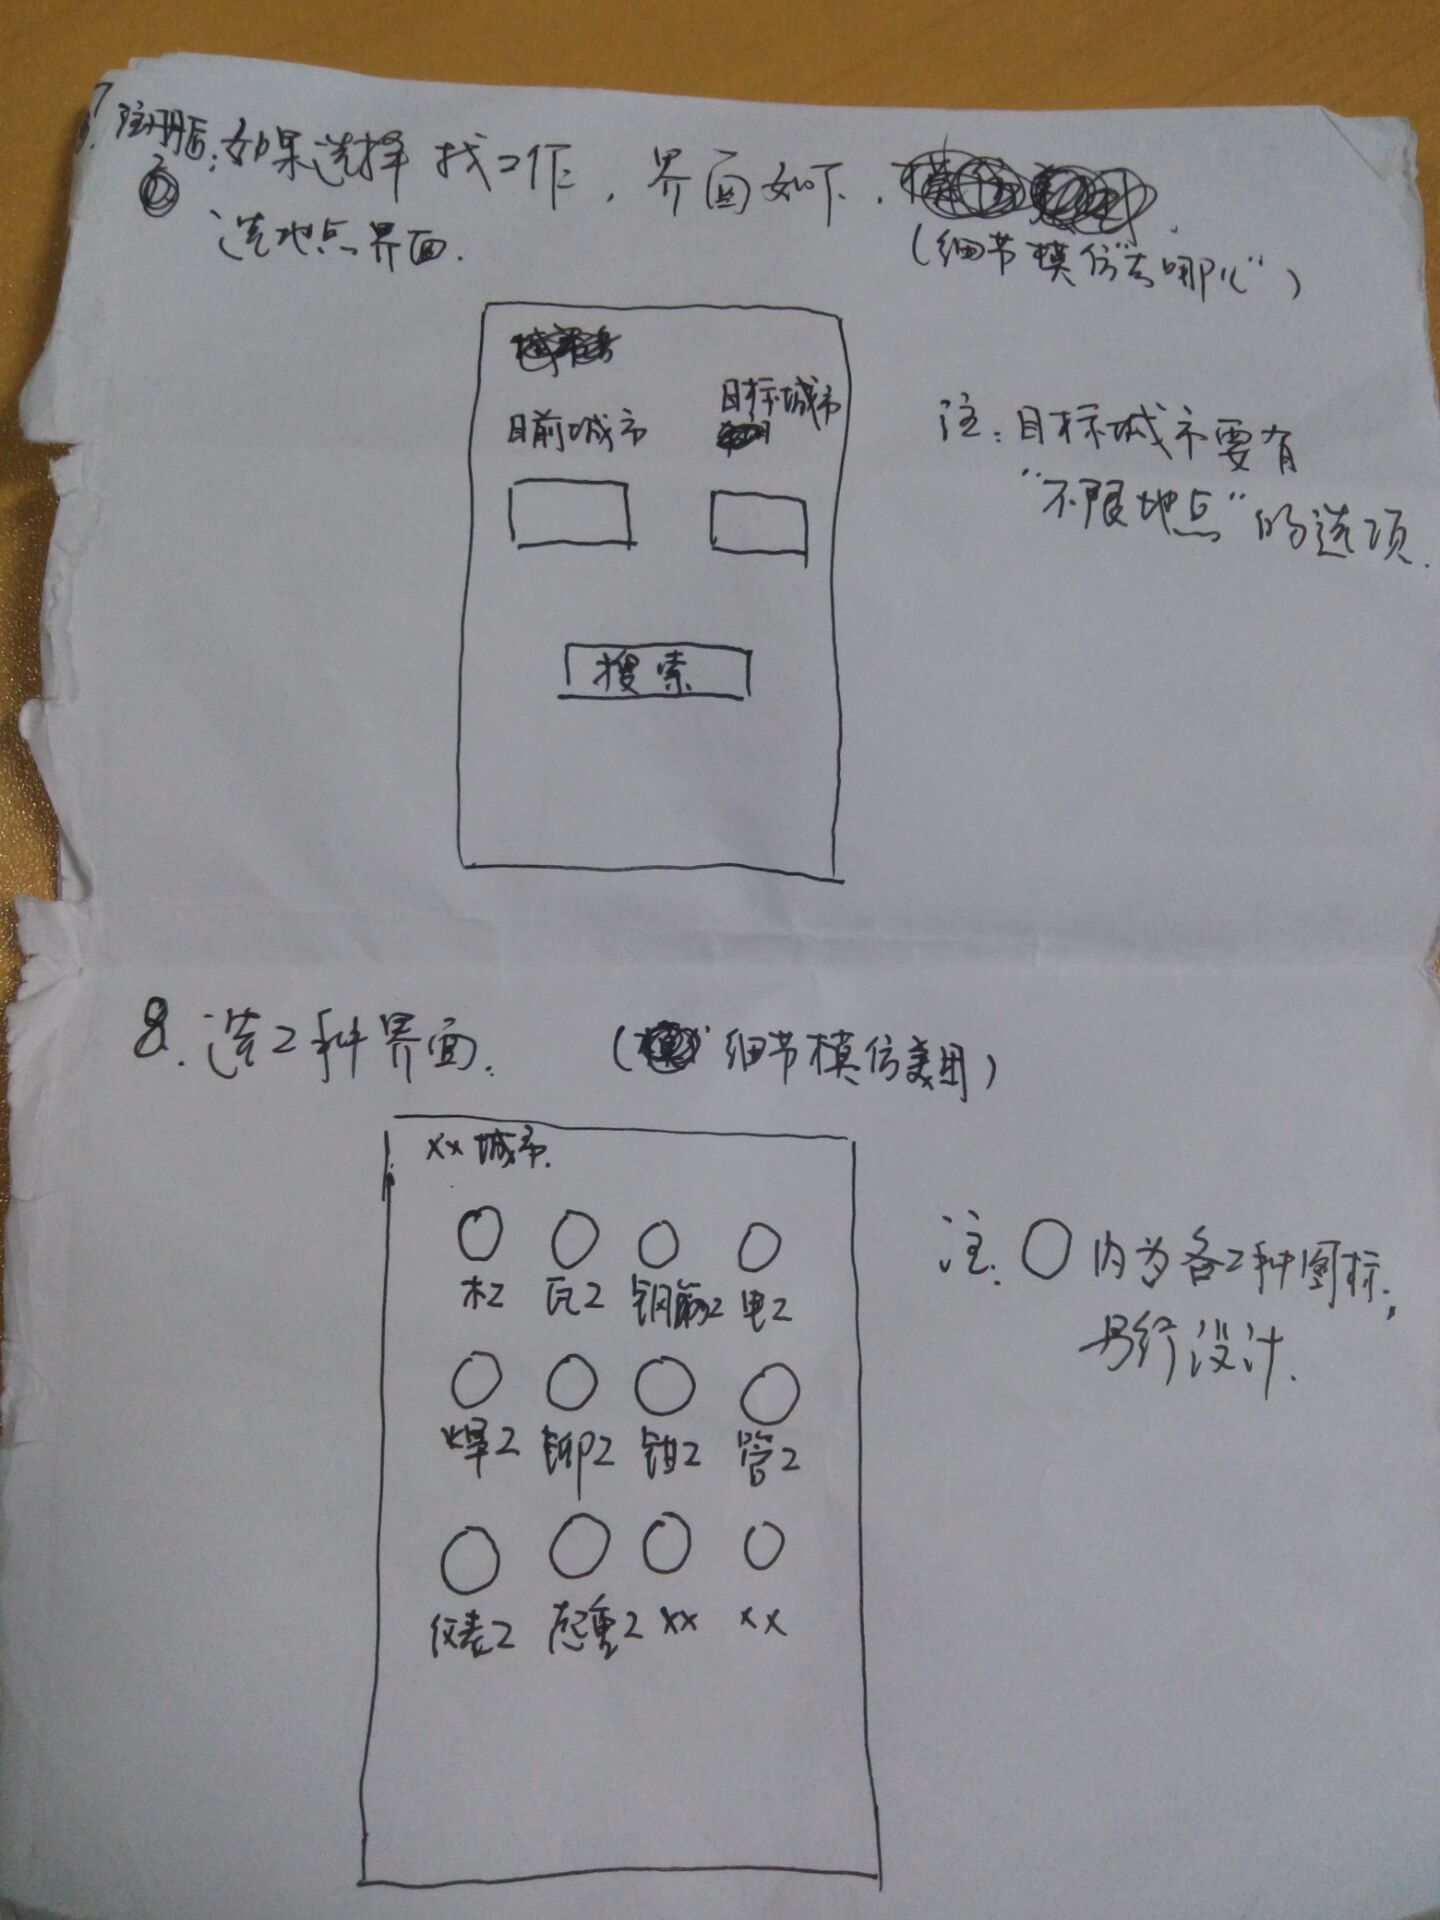 7. 注册后:如果选择找工作,界面如下.
选地点界面.
(细节模仿"去哪儿")
目前城市
目标城市
搜索
注:目标城市要有
"不限地点"的选项.
8. 选工种界面. (细节模仿美团)
xx城市.
木工 瓦工 钢筋工 电工
焊工 铆工 钳工 管工
仪表工 起重工 xx xx
注. ○内为各工种图标,
另行设计.